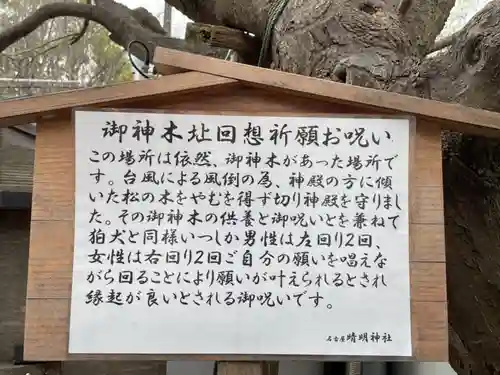 御神木址回想祈願お呪い
この場所は依然、御神木があった場所で
す。台風による風倒の為、神殿の方に傾
いた松の木をやむを得ず切り神殿を守りまし
た。その御神木の供養と御呪いとを兼ねて
狛犬と同様いつしか男性は左回り2回、
女性は右回り2回ご自分の願いを唱えな
がら回ることにより願いが叶えられるとされ
縁起が良いとされる御呪いです。
名古屋晴明神社